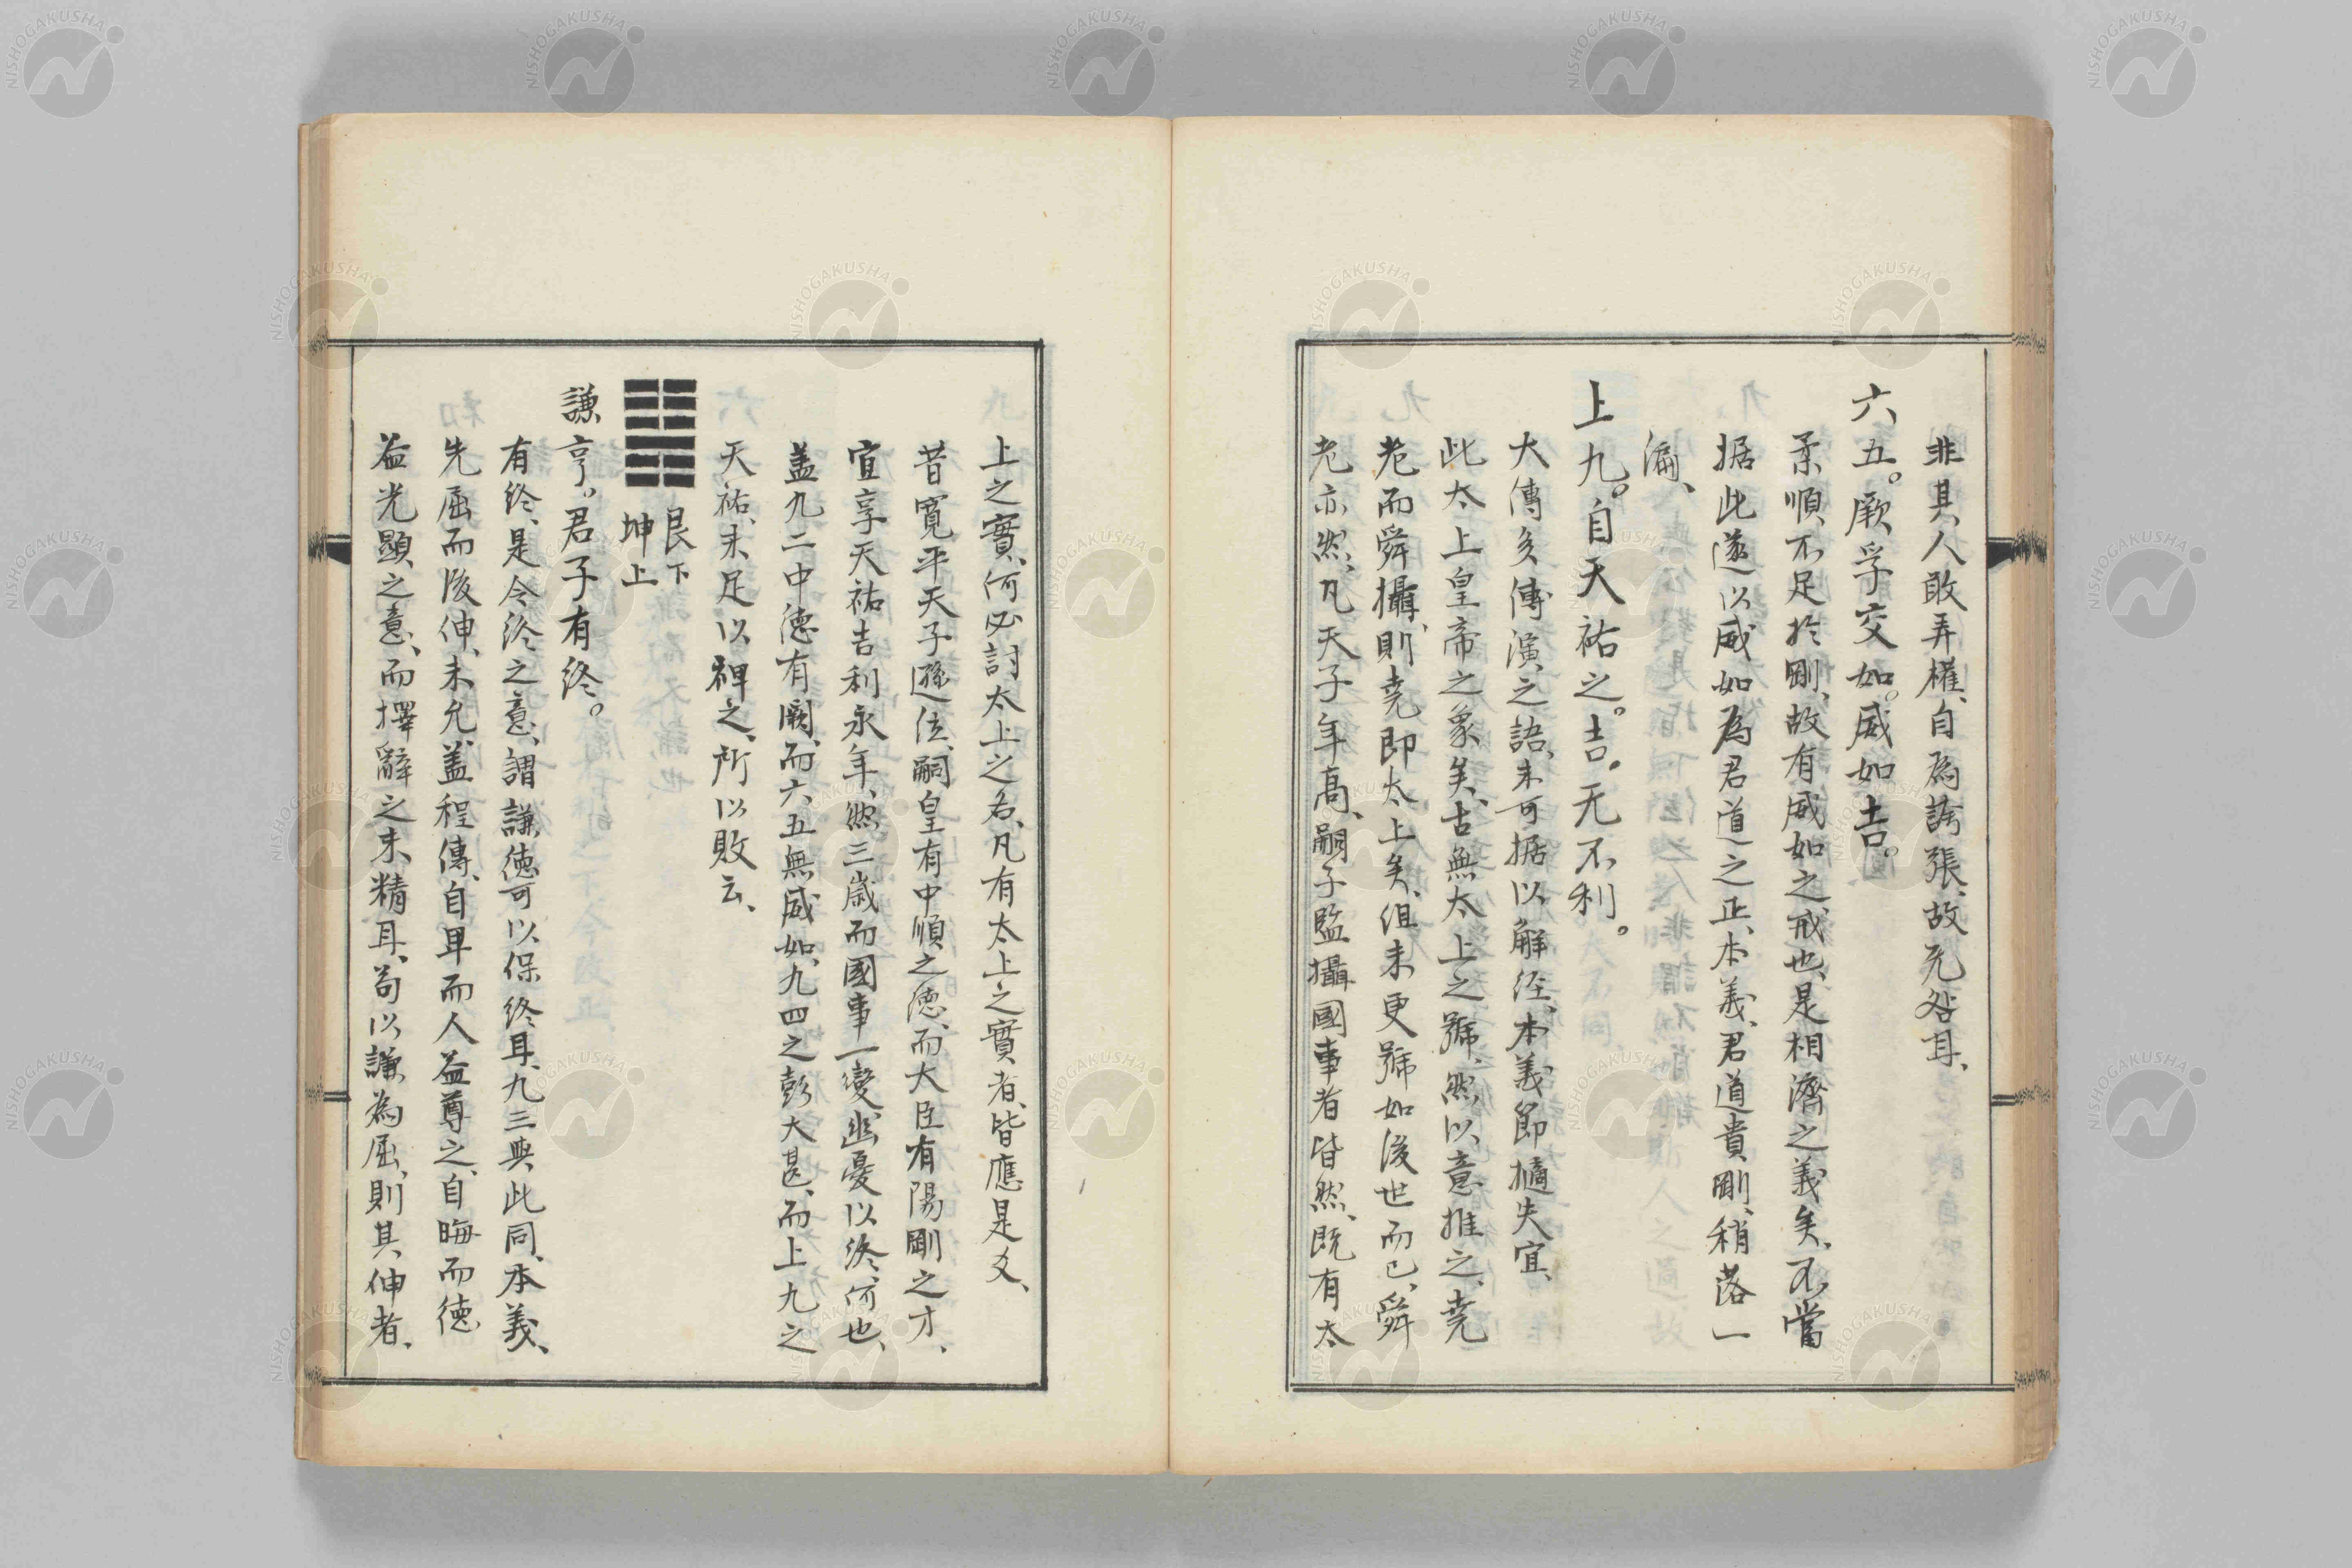 非其人敢弄權、自為誇張、故无咎耳、
六五。厥孚交如。威如吉。
柔順不足於剛、故有威如之戒也、是相濟之義矣、不當
据此遂以威如為君道之正、本義、君道貴剛、稍落一
偏、
上九。自天祐之。吉。无不利。
大傳多傅演之語、未可据以解經、本義節擿失宜、
此太上皇帝之象矣、古無太上之號、然以意推之、堯
老而舜攝、則堯即太上矣、但未更號如後世而已、舜
老亦然、凡天子年高、嗣子監攝國事者皆然、既有太
上之實、何必討太上之名、凡有太上之實者、皆應是爻、
昔寛平天子遜位、嗣皇有中順之德、而大臣有陽剛之才、
宜享天祐吉利永年、然三歲而國事一變、幽憂以終、何也、
蓋九二中德有闕、而六五無威如、九四之彭大甚、而上九之
天祐、未足以裨之、所以敗云、
艮下
坤上
謙亨。君子有終。
有終、是令終之意、謂謙德可以保終耳、九三與此同、本義、
先屈而後伸、未允、蓋程傳、自卑而人益尊之、自晦而德
益光顯之意、而擇辭之未精耳、苟以謙為屈、則其伸者、
NISHOGAKUSHA